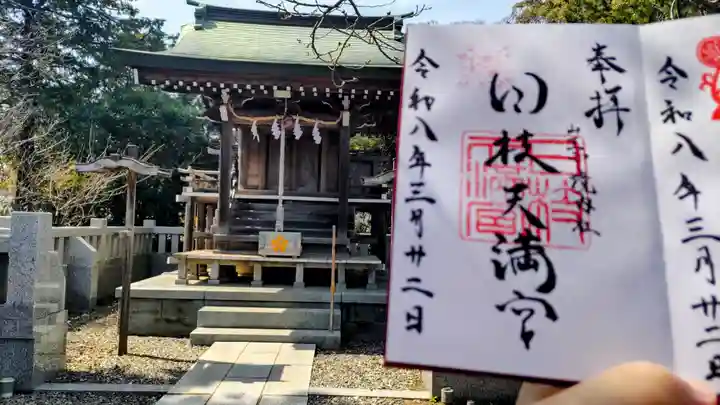 令和八年三月廿二日
奉拝
日枝天満宮
令和八年三月廿二日